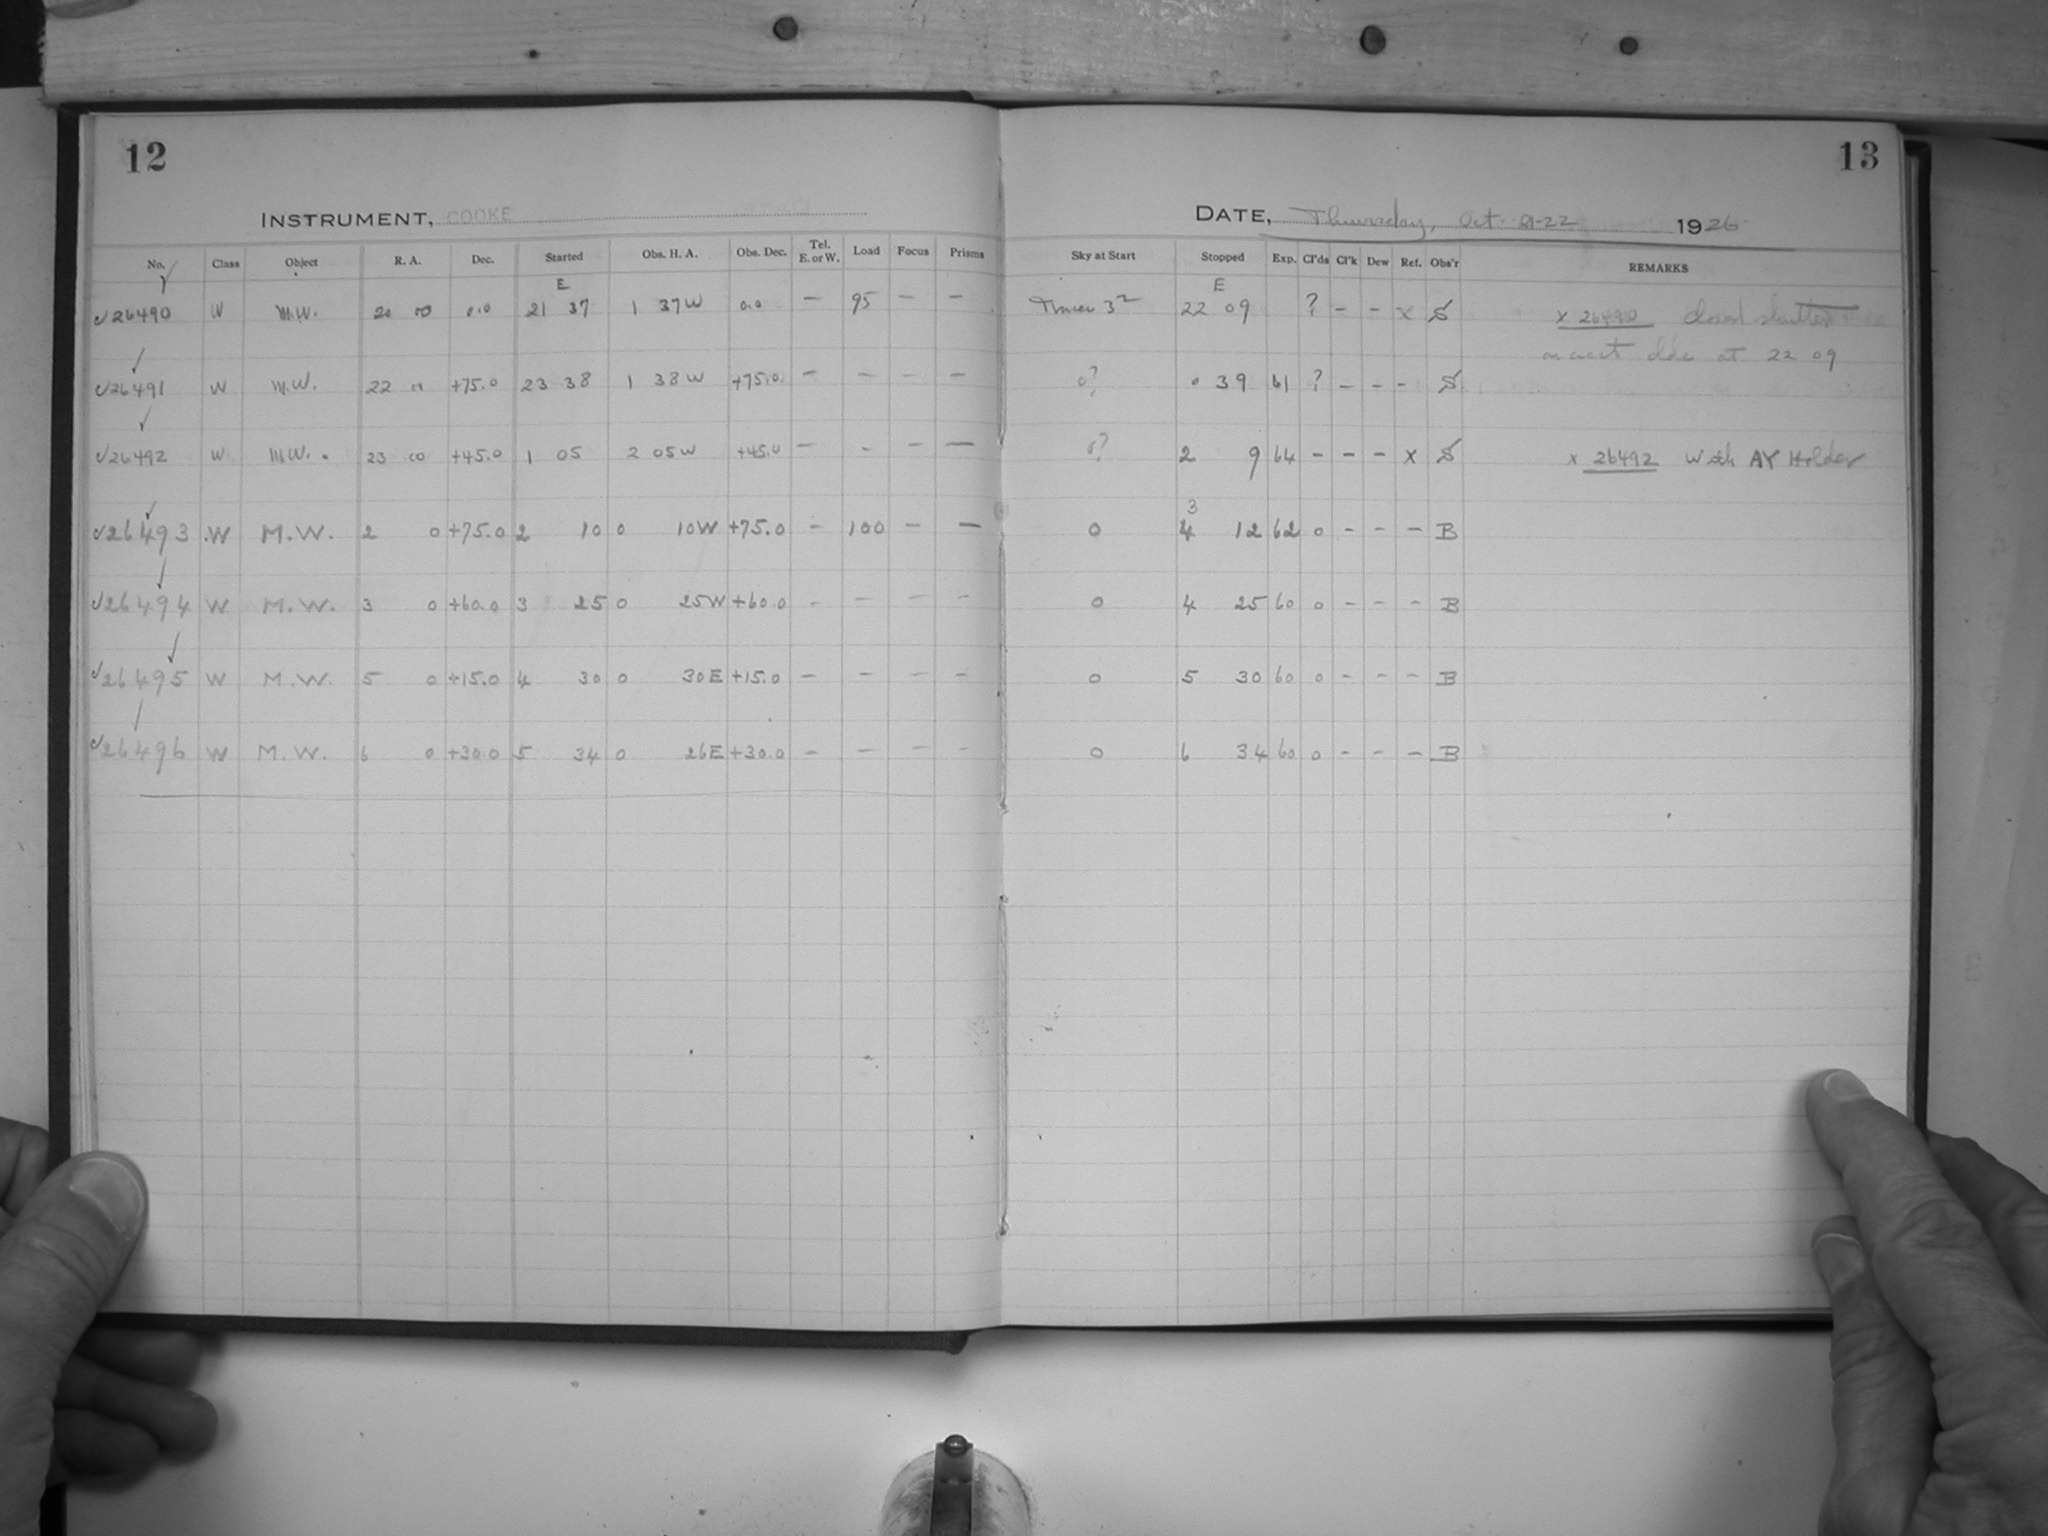 12
INSTRUMENT, COOKE
No. Class Object R. A. Dec. Started Obs. H. A. Obs. Dec. Tel. E. or W. Load Focus Prisms
E
√26490 W M.W. 20 00 0.0 21 37 1 37W 0.0 — 95 — —
√26491 W M.W. 22 00 +75.0 23 38 1 38W +75.0 — — — —
√26492 W M.W. 23 00 +45.0 1 05 2 05W +45.0 — - — —
√26493 W M.W. 2 0 +75.0 2 10 0 10W +75.0 - 100 — —
√26494 W M.W. 3 0 +60.0 3 25 0 25W +60.0 - — — -
√26495 W M.W. 5 0 +15.0 4 30 0 30E +15.0 — — — —
√26496 W M.W. 6 0 +30.0 5 34 0 26E +30.0 — — — -
13
DATE, Thursday, Oct. 21-22 1926
Sky at Start Stopped Exp. Cl'ds Cl'k Dew Ref. Obs'r REMARKS
E
3² 22 09 ? - - x S x 26490 closed shutter
at 22 09
0? 0 39 61 ? - - - S
0? 2 9 64 - - - x S x 26492 with AY Holder
3
0 4 12 62 0 - - - B
0 4 25 60 0 - - - B
0 5 30 60 0 - - - B
0 6 34 60 0 - - - B